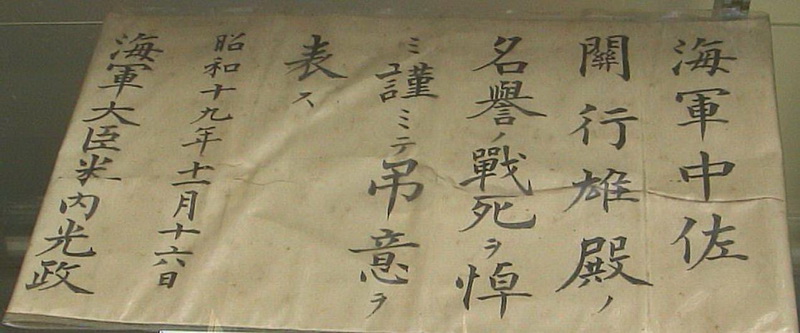 海軍中佐
關行雄殿ノ
名譽ノ戰死ヲ悼
ミ謹ミテ吊意ヲ
表ス
昭和十九年十一月十六日
海軍大臣米内光政